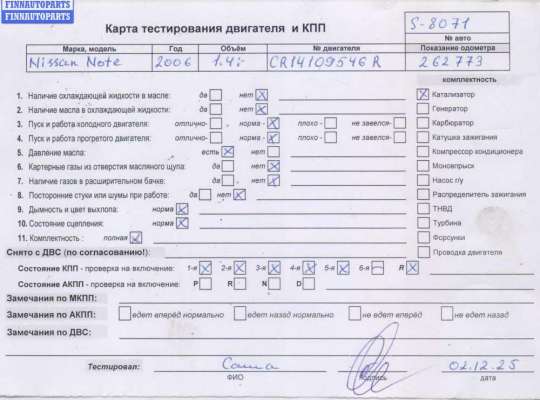 FINNAUTOPARTS
FINNAUTOPARTS
Карта тестирования двигателя и КПП
S-8071
№ авто
Марка, модель Год Объём № двигателя Показание одометра
Nissan Note 2006 1.4i CR14109546R 262773
комплектность
1. Наличие охлаждающей жидкости в масле: да нет Катализатор
2. Наличие масла в охлаждающей жидкости: да нет Генератор
3. Пуск и работа холодного двигателя: отлично- норма - плохо - не завелся- Карбюратор
4. Пуск и работа прогретого двигателя: отлично- норма - плохо - не завелся- Катушка зажигания
5. Давление масла: есть нет Компрессор кондиционера
6. Картерные газы из отверстия масляного щупа: да нет Моновпрыск
7. Наличие газов в расширительном бачке: да нет Насос г/у
8. Посторонние стуки или шумы при работе: да нет Распределитель зажигания
9. Дымность и цвет выхлопа: норма ТНВД
10. Состояние сцепления: норма Турбина
11. Комплектность : полная Форсунки
Снято с ДВС (по согласованию!): Проводка двигателя
Состояние КПП - проверка на включение: 1-я 2-я 3-я 4-я 5-я 6-я R
Состояние АКПП - проверка на включение: P R N D
Замечания по МКПП:
Замечания по АКПП: едет вперёд нормально едет назад нормально не едет вперёд не едет назад
Замечания по ДВС:
Тестировал: Саша 02.12.25
ФИО подпись дата